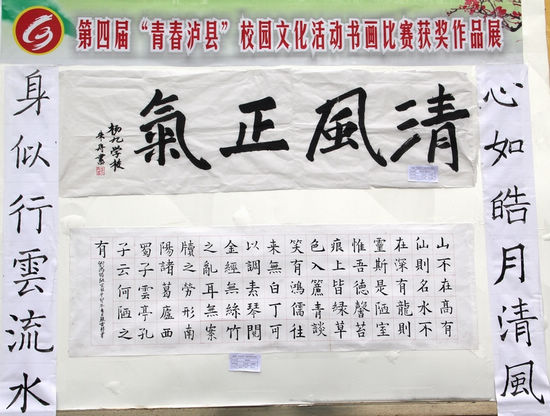 第四届“青春泸县”校园文化活动书画比赛获奖作品展
心如皓月清風
清風正氣
杨九学校
朱丹書
山不在高有
仙則名水不
在深有龍則
靈斯是陋室
惟吾德馨苔
痕上皆緑草
色入簾青談
笑有鴻儒往
来無白丁可
以調素琴閱
金經無絲竹
之亂耳無案
牘之勞形南
陽諸葛廬西
蜀子雲亭孔
子云何陋之
有
身似行雲流水